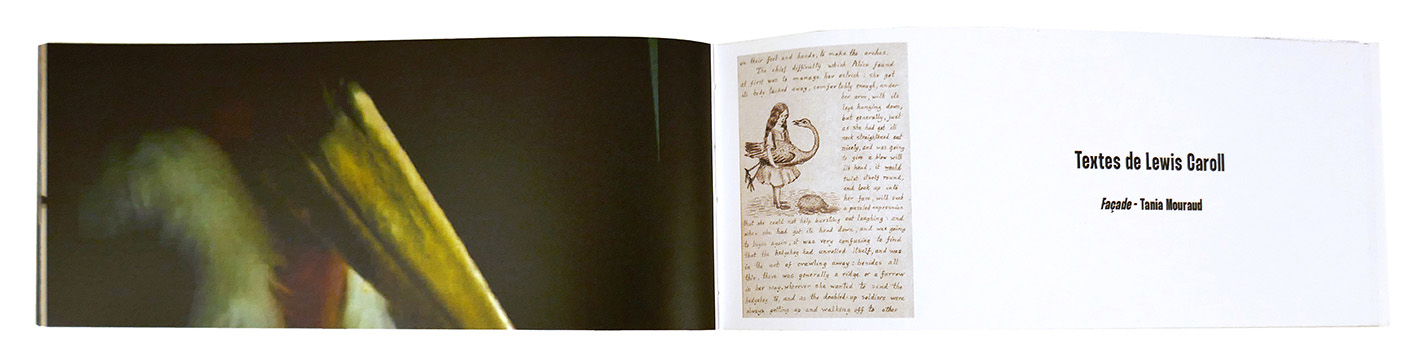 on their feet and hands, to make the arches.
The chief difficulty which Alice found
at first was to manage her ostrich: she got
its body tucked away, comfortably enough, under
her arm, with its
legs hanging down,
but generally, just
as she had got its
neck straightened out
nicely, and was going
to give a blow with
its head, it would
twist itself round,
and look up into
her face, with such
a puzzled expression
that she could not help bursting out laughing: and
when she had got its head down, and was going
to begin again, it was very confusing to find
that the hedgehog had unrolled itself, and was
in the act of crawling away: besides all
this, there was generally a ridge or a furrow
in her way, wherever she wanted to send the
hedgehog to, and as the doubled-up soldiers were
always getting up and walking off to other
Textes de Lewis Caroll
Façade - Tania Mouraud